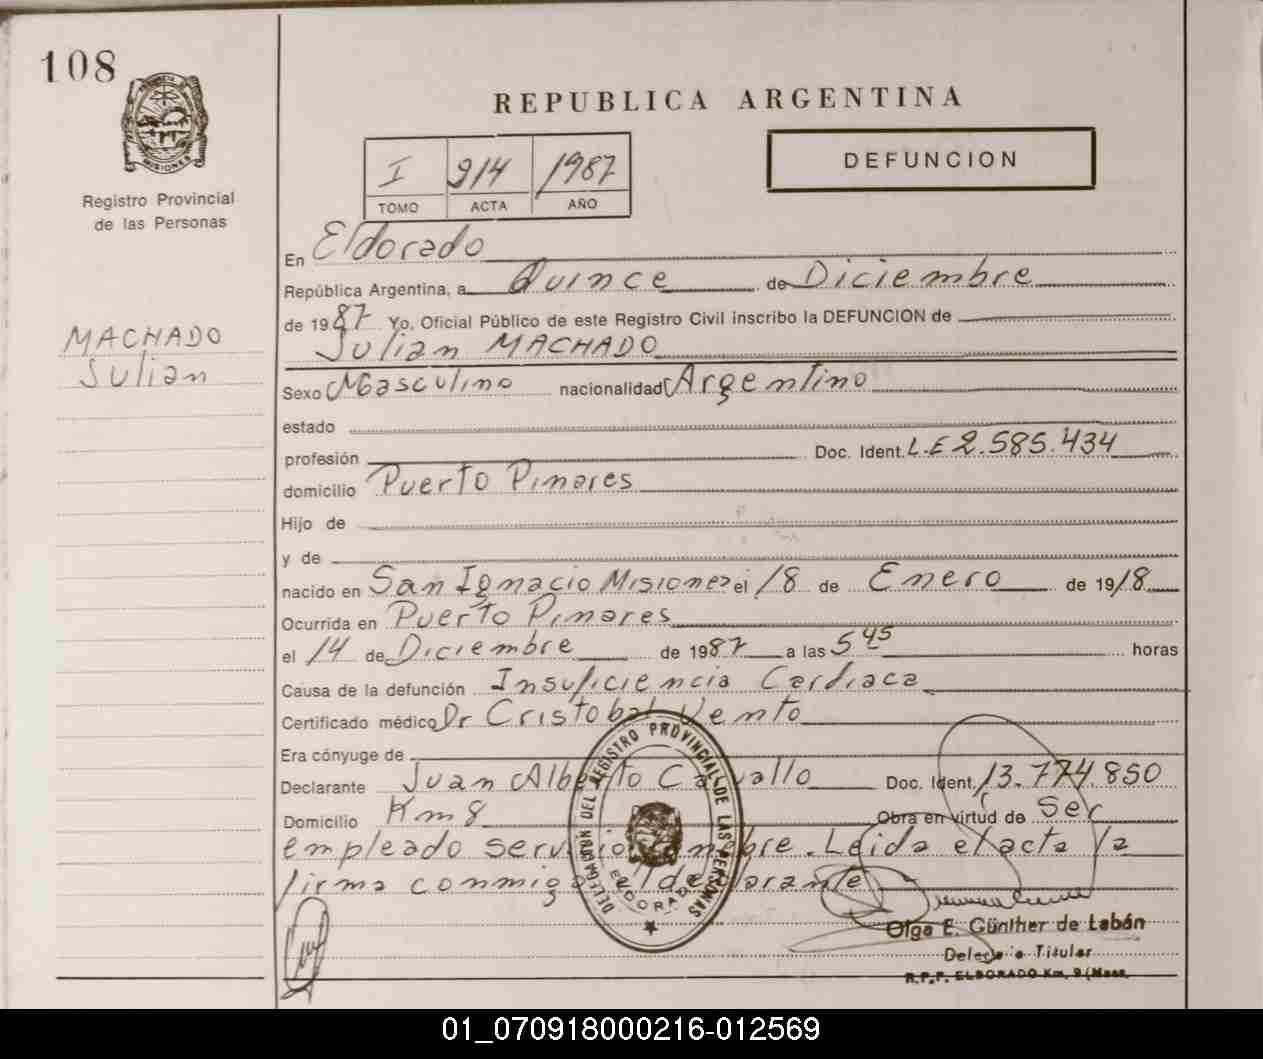 108
MISIONES
Registro Provincial
de las Personas
MACHADO
Julian
REPUBLICA ARGENTINA
I 914 1987
TOMO ACTA AÑO
DEFUNCION
En Eldorado
República Argentina, a Quince de Diciembre
de 1987 Yo, Oficial Público de este Registro Civil inscribo la DEFUNCION de
Julian MACHADO
Sexo Masculino nacionalidad Argentino
estado
profesión Doc. Ident. L.E 2.585.434
domicilio Puerto Pinares
Hijo de
y de
nacido en San Ignacio Misiones el 18 de Enero de 1918
Ocurrida en Puerto Pinares
el 14 de Diciembre de 1987 a las 5 45 horas
Causa de la defunción Insuficiencia Cardiaca
Certificado médico Dr Cristobal Vento
Era cónyuge de
Declarante Juan Alberto Carvallo Doc. Ident. 13.774.850
Domicilio Km 8 Obra en virtud de Ser
empleado servicio fúnebre. Leida el acta la
firma conmigo el declarante
DELEGACION DEL REGISTRO PROVINCIAL DE LAS PERSONAS
ELDORADO
Olga E. Günther de Labán
Delegada Titular
R.P.P. ELDORADO Km. 9 (Mnes.
01_070918000216-012569